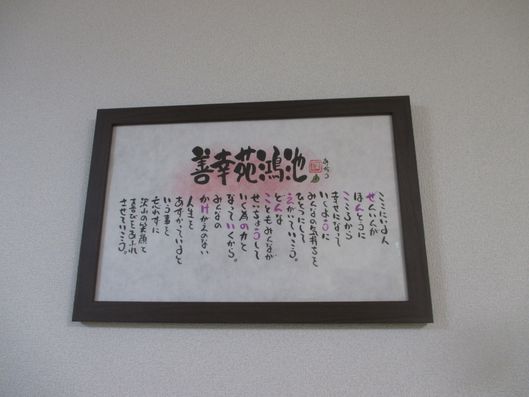 善幸苑鴻池
ここにいる人
ぜんいんが
ほんとうに
こころから
幸せになって
いくように
みんなの気持ちを
ひとつにして
えがいていこう。
どんな
こともみんなが
せいちょうして
いく為の力と
なっていくから。
みんなの
かけがえのない
人生を
あずかっていると
いう事を
忘れずに
沢山の笑顔と
喜びをあふれ
させていこう。